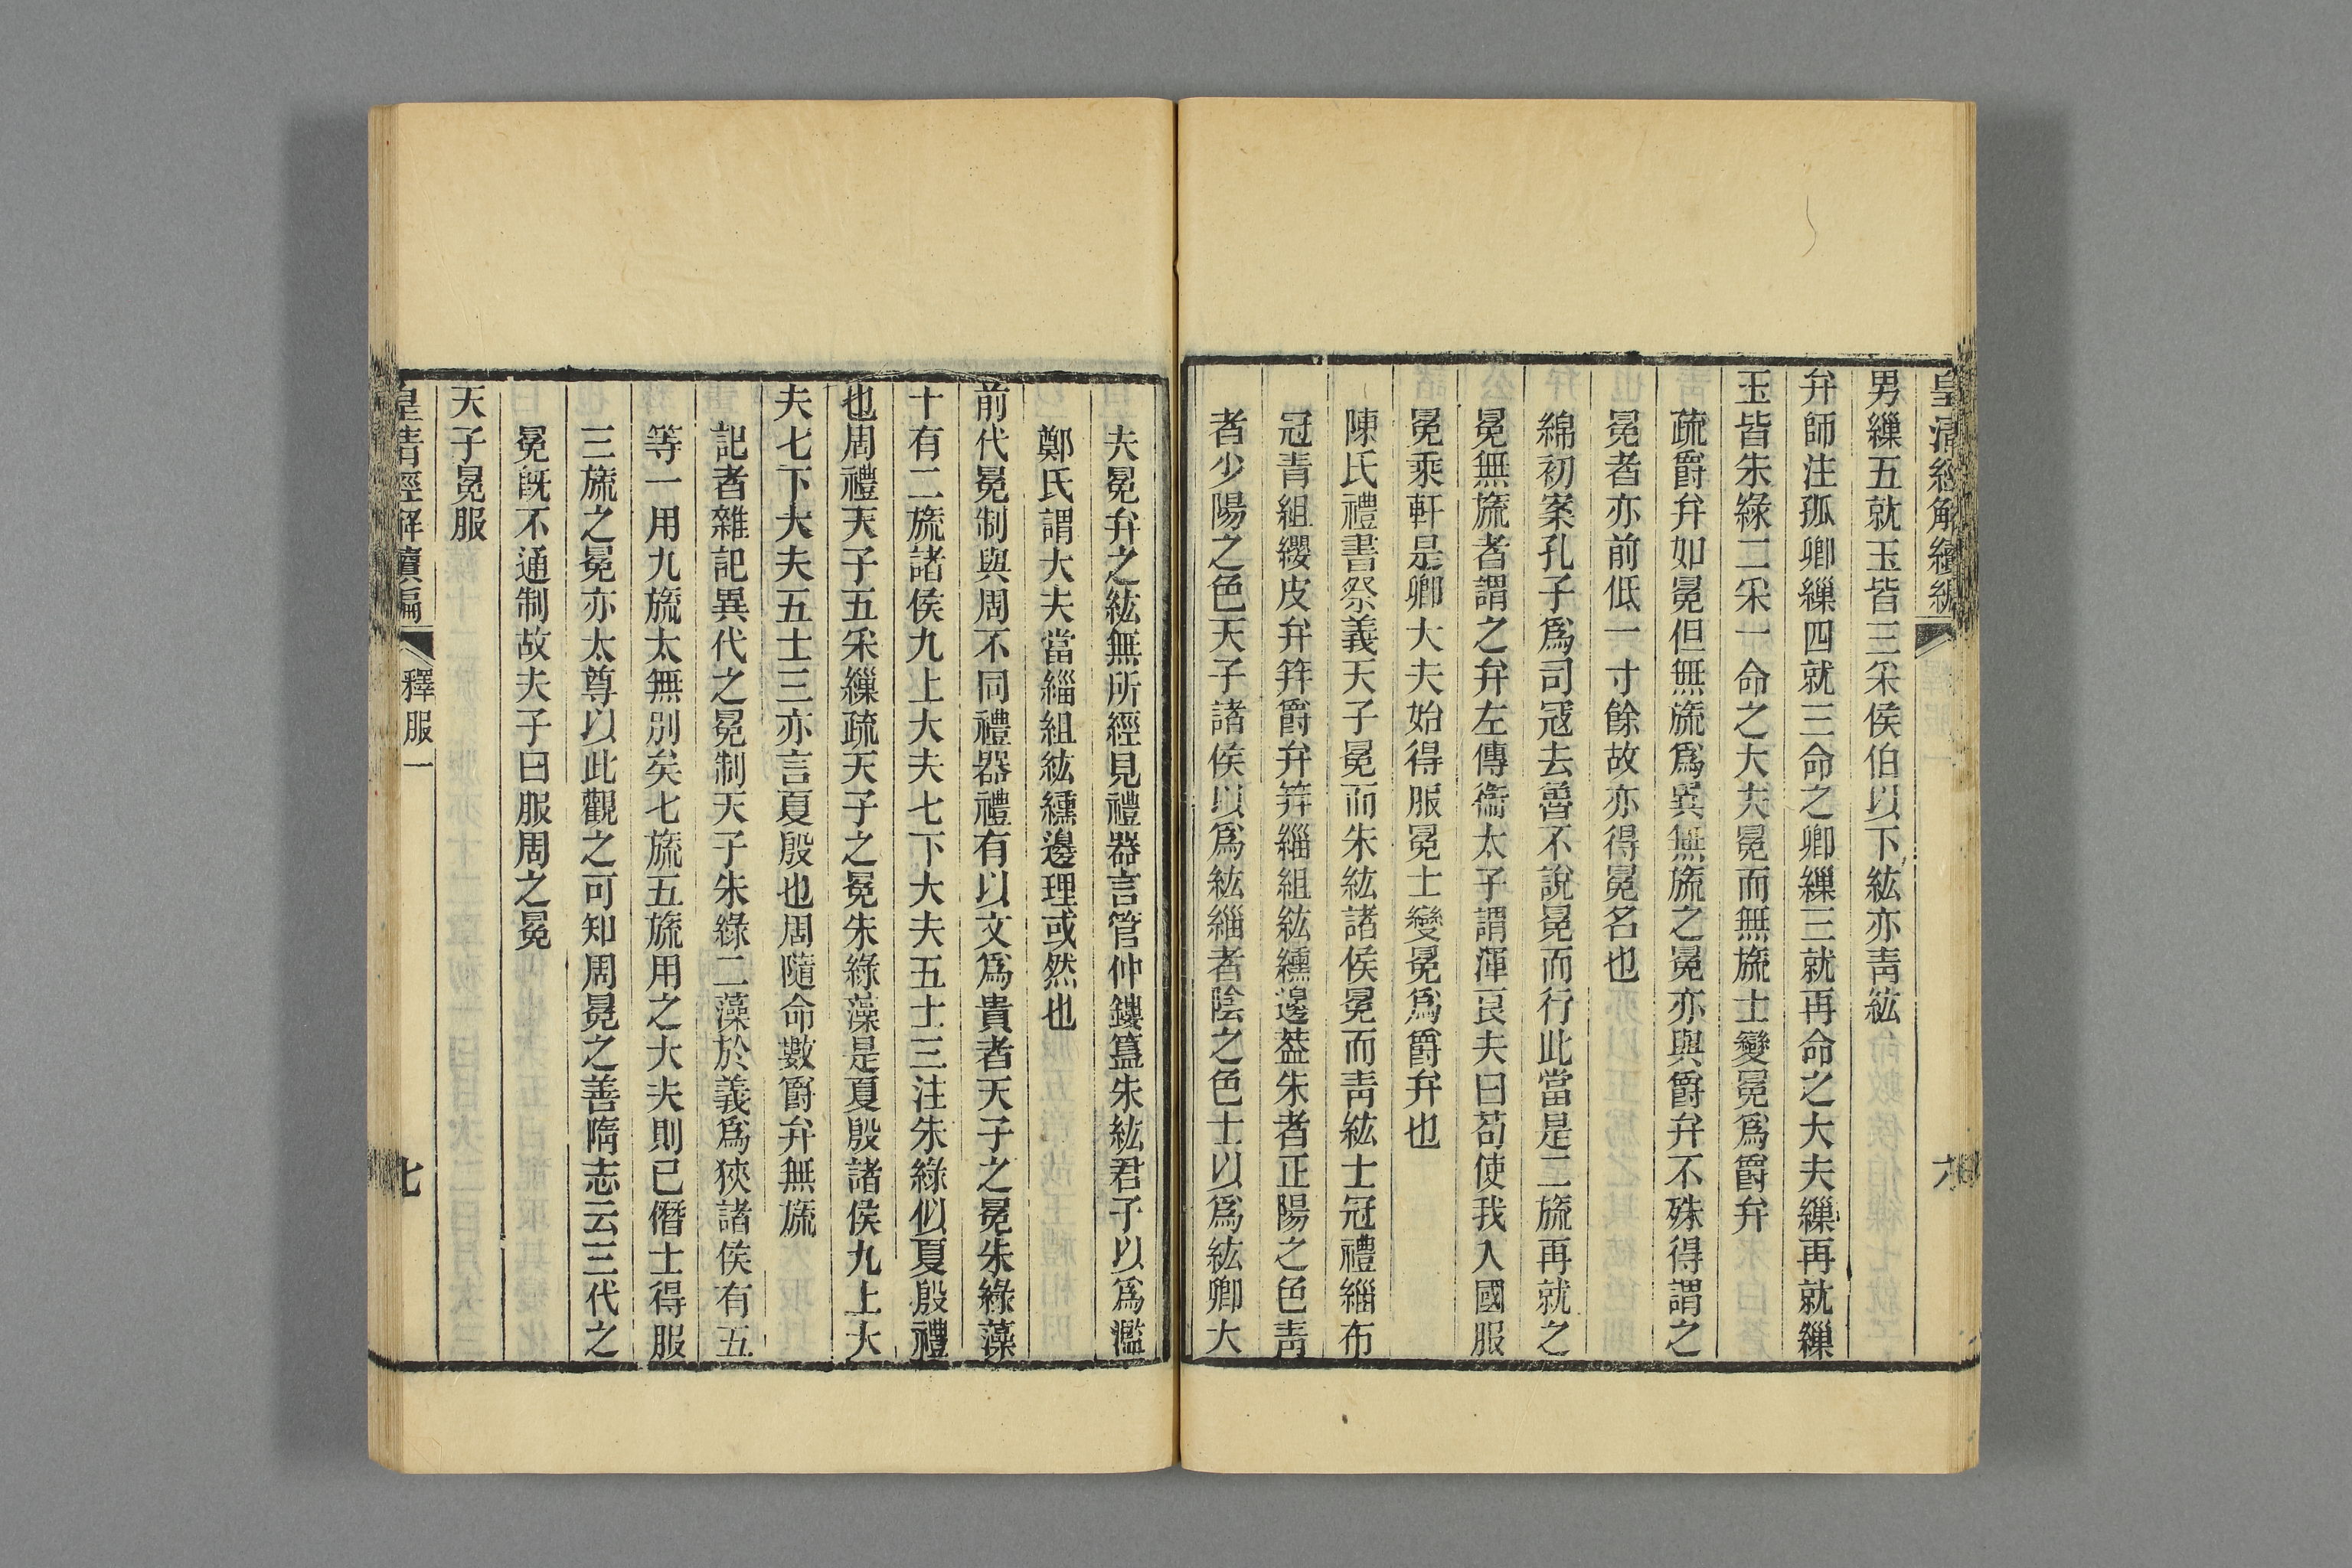 皇清經解續編
六
男繅五就玉皆三采侯伯以下紘亦靑紘
弁師注孤卿繅四就三命之卿繅三就再命之大夫繅再就繅
玉皆朱綠二采一命之大夫冕而無旒士變冕爲爵弁
疏爵弁如冕但無旒爲異無旒之冕亦與爵弁不殊得謂之
冕者亦前低一寸餘故亦得冕名也
綿初案孔子爲司冦去魯不說冕而行此當是二旒再就之
冕無旒者謂之弁左傳衞太子謂渾良夫曰苟使我入國服
冕乘軒是卿大夫始得服冕士變冕爲爵弁也
陳氏禮書祭義天子冕而朱紘諸侯冕而靑紘士冠禮緇布
冠青組纓皮弁笄爵弁笄緇組紘纁邊葢朱者正陽之色靑
者少陽之色天子諸侯以爲紘緇者陰之色士以爲紘卿大
夫冕弁之紘無所經見禮器言管仲鏤簋朱紘君子以爲濫
鄭氏謂大夫當緇組紘纁邊理或然也
前代冕制與周不同禮器禮有以文爲貴者天子之冕朱綠藻
十有二旒諸侯九上大夫七下大夫五士三注朱綠似夏殷禮
也周禮天子五采繅疏天子之冕朱綠藻是夏殷諸侯九上大
夫七下大夫五士三亦言夏殷也周隨命數爵弁無旒
記者雜記異代之冕制天子朱綠二藻於義爲狹諸侯有五
等一用九旒太無別矣七旒五旒用之大夫則已僭士得服
三旒之冕亦太尊以此觀之可知周冕之善隋志云三代之
冕旣不通制故夫子曰服周之冕
天子冕服
皇清經解續編
釋服一
七